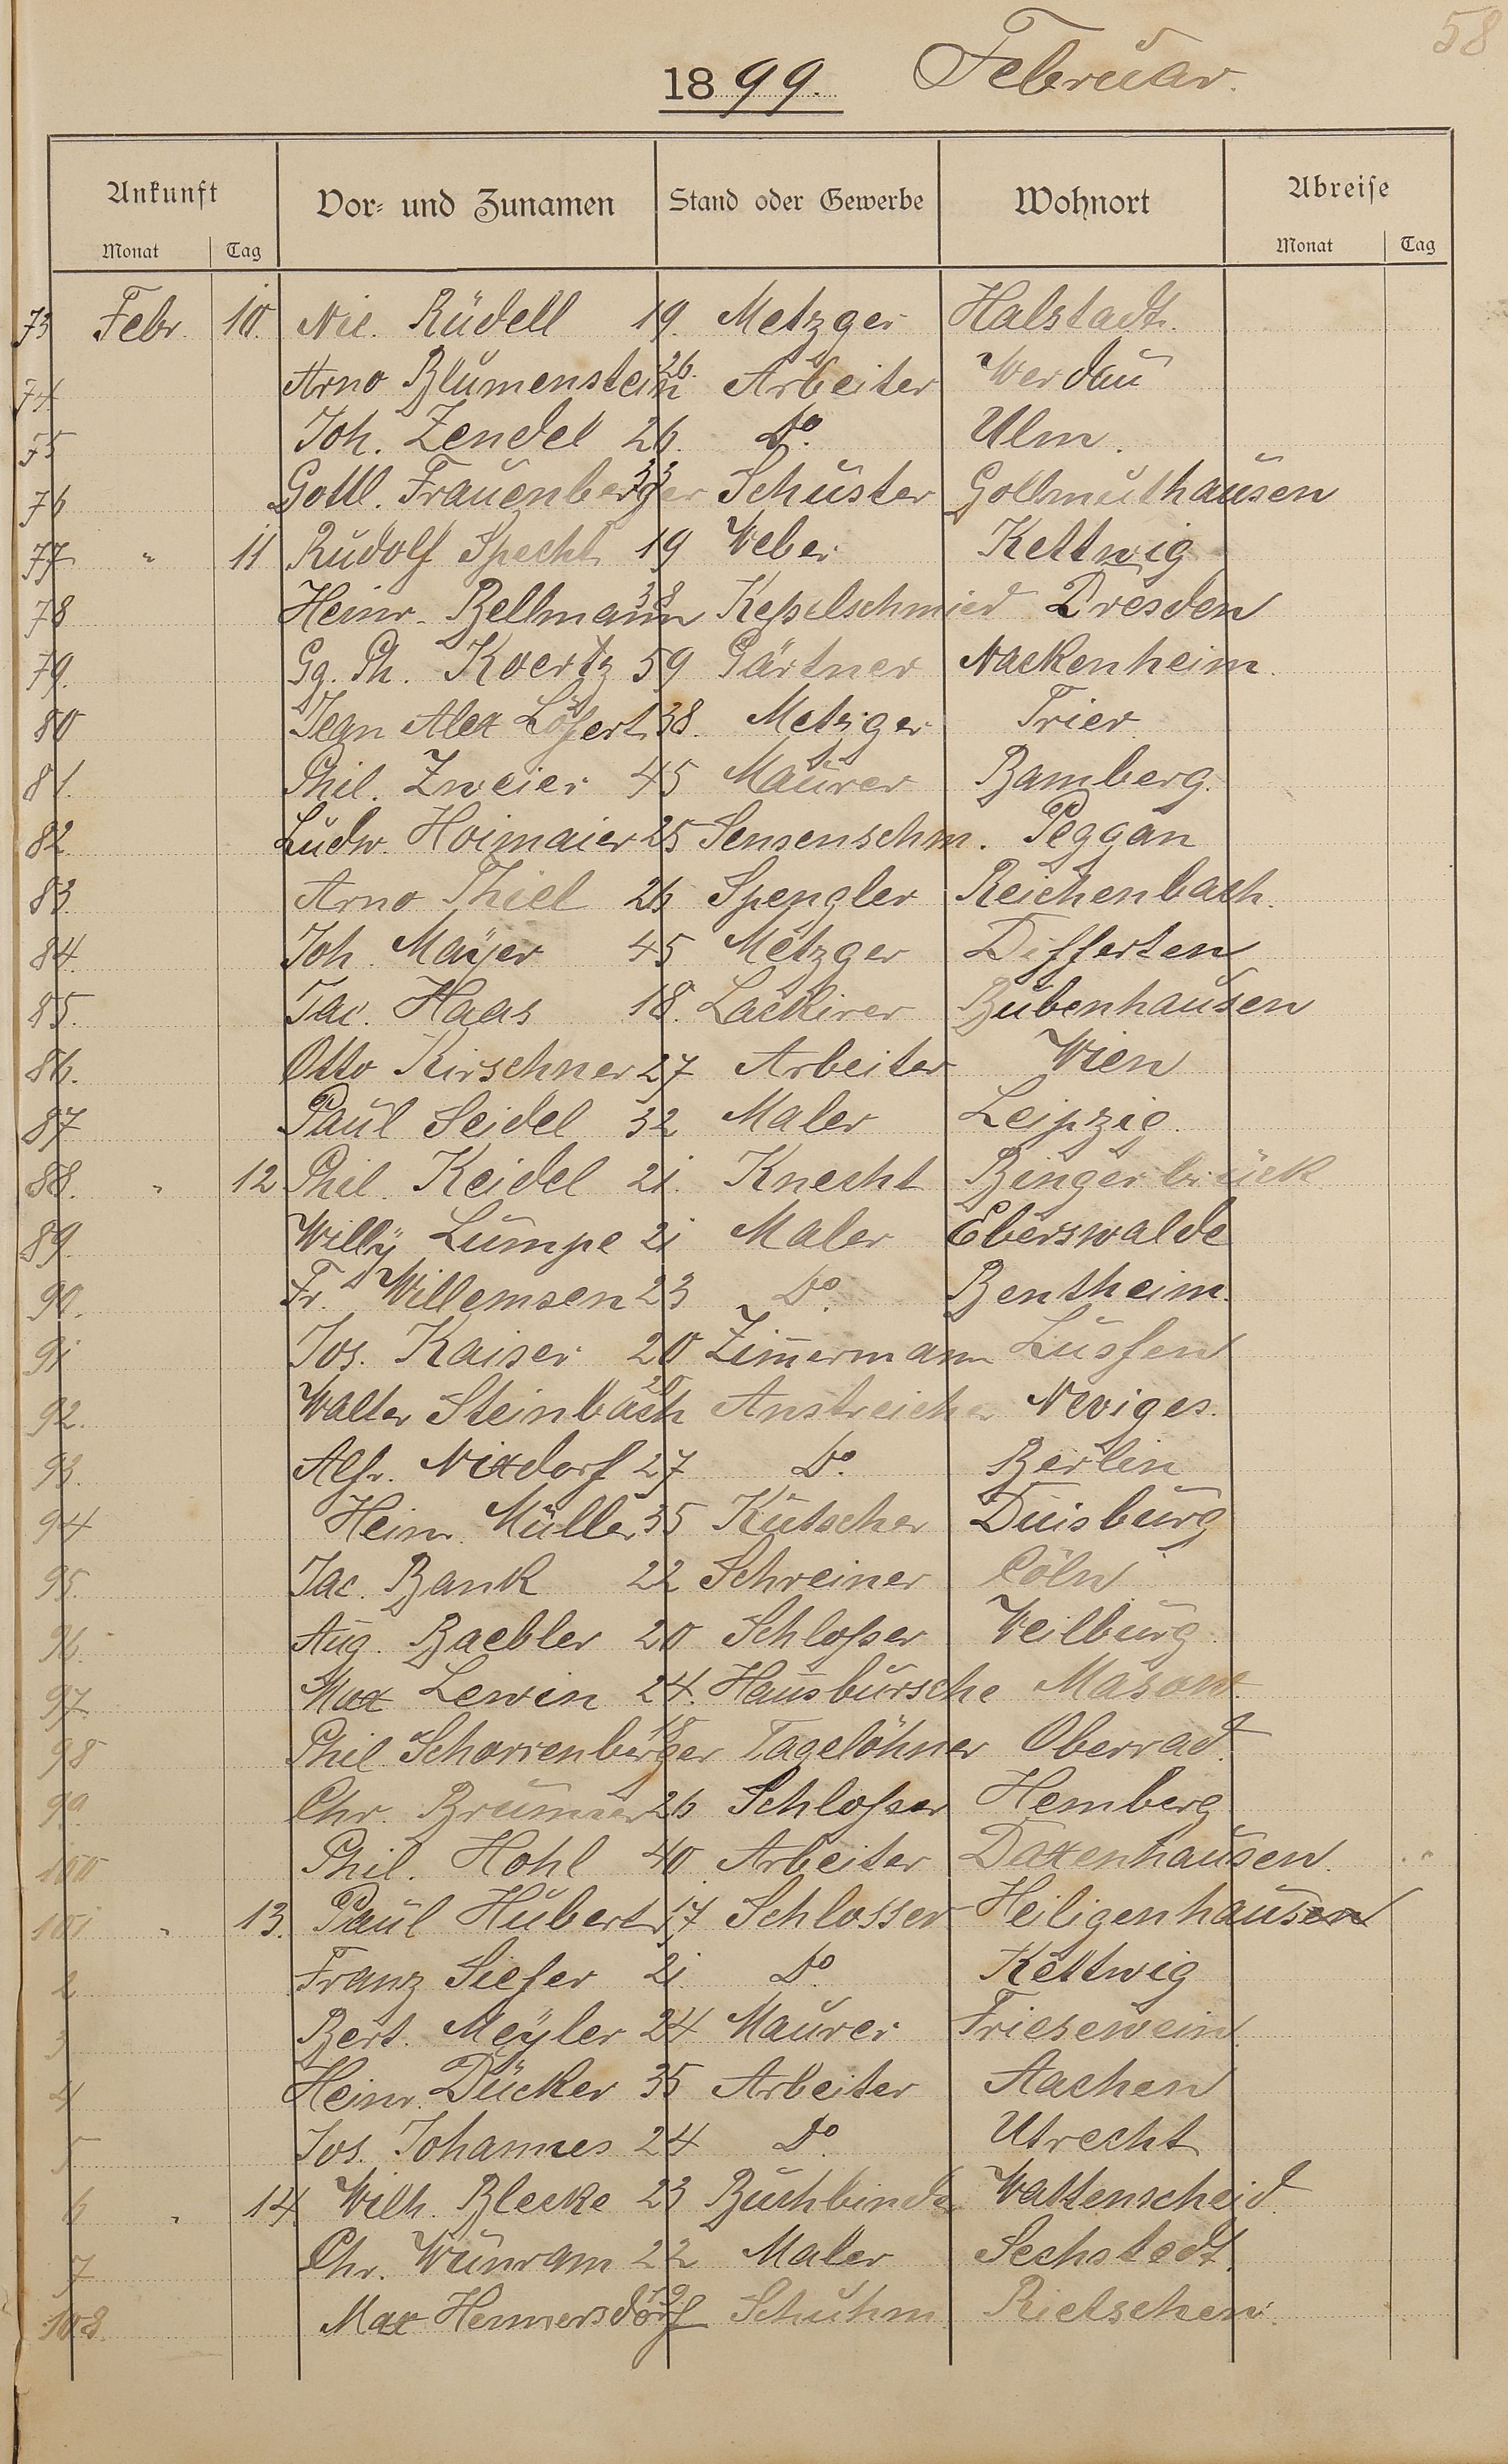 58
1899. Februar.
Ankunft Vor- und Zunamen Stand oder Gewerbe Wohnort Abreise
Monat Tag Monat Tag
73 Febr. 10. Nic. Rüdell 19. Metzger Halstadt.
74 Arno Blumenstein 26. Arbeiter Werdau
75 Joh. Zendel 26. Do. Ulm.
76 Gottl. Frauenberger 33 Schuster Gollmuthausen
77 " 11 Rudolf Specht 19 Weber Kettwig
78 Heinr. Bellmann 38 Keßelschmied Dresden
79. Gg. Ph. Koertz 59 Gärtner Nackenheim.
80 Jean Alex Löfert 38. Metzger Trier
81. Phil. Zweier 45 Maurer Bamberg.
82 Ludw. Hoimaier 25 Sensenschm. Peggan
83 Arno Thiel 26 Spengler Reichenbach.
84. Joh. Mayer 45 Metzger Differten
85. Jac. Haas 18. Lackirer Bubenhausen
86. Otto Kirschner 27 Arbeiter Wien
87 Paul Seidel 32 Maler Leipzig.
88. " 12 Phil. Keidel 21. Knecht Bingerbrück
89. Willy Lumpe 21 Maler Eberswalde
90. Fr. Willemsen 23 Do. Bentheim.
91 Jos. Kaiser 20 Zim̄ermann
92. Walter Steinbach Anstreicher Neviges.
93. Alfr. Nixdorf 27 Do. Berlin
94 Heinr. Müller 35 Kutscher Duisburg
95. Jac. Bank 22 Schreiner Cöln
96. Aug. Baebler 20 Schloßer Weilburg.
97. Max Lewin 24. Hausbursche Masow.
98 Phil. Scharrenberger 18 Tagelöhner Oberrad.
99. Chr. Brummer 26 Schloßer Hemberg
100 Phil. Hohl 40. Arbeiter Daxenhausen.
101 " 13. Paul Hubert 17 Schlosser Heiligenhausen
2 Franz Siefer 21 Do. Kettwig
3 Bert. Meyler 24 Maurer Friesewein
4 Heinr. Dücker 35 Arbeiter Aachen
5 Jos. Johannes 24 Do. Utrecht
6 " 14. Wilh. Blecke 23 Buchbinder Wattenscheid.
7 Chr. Wunram 22 Maler Sechstedt.
108. Max Hennersdorf 19. Schuhm. Rietschen.